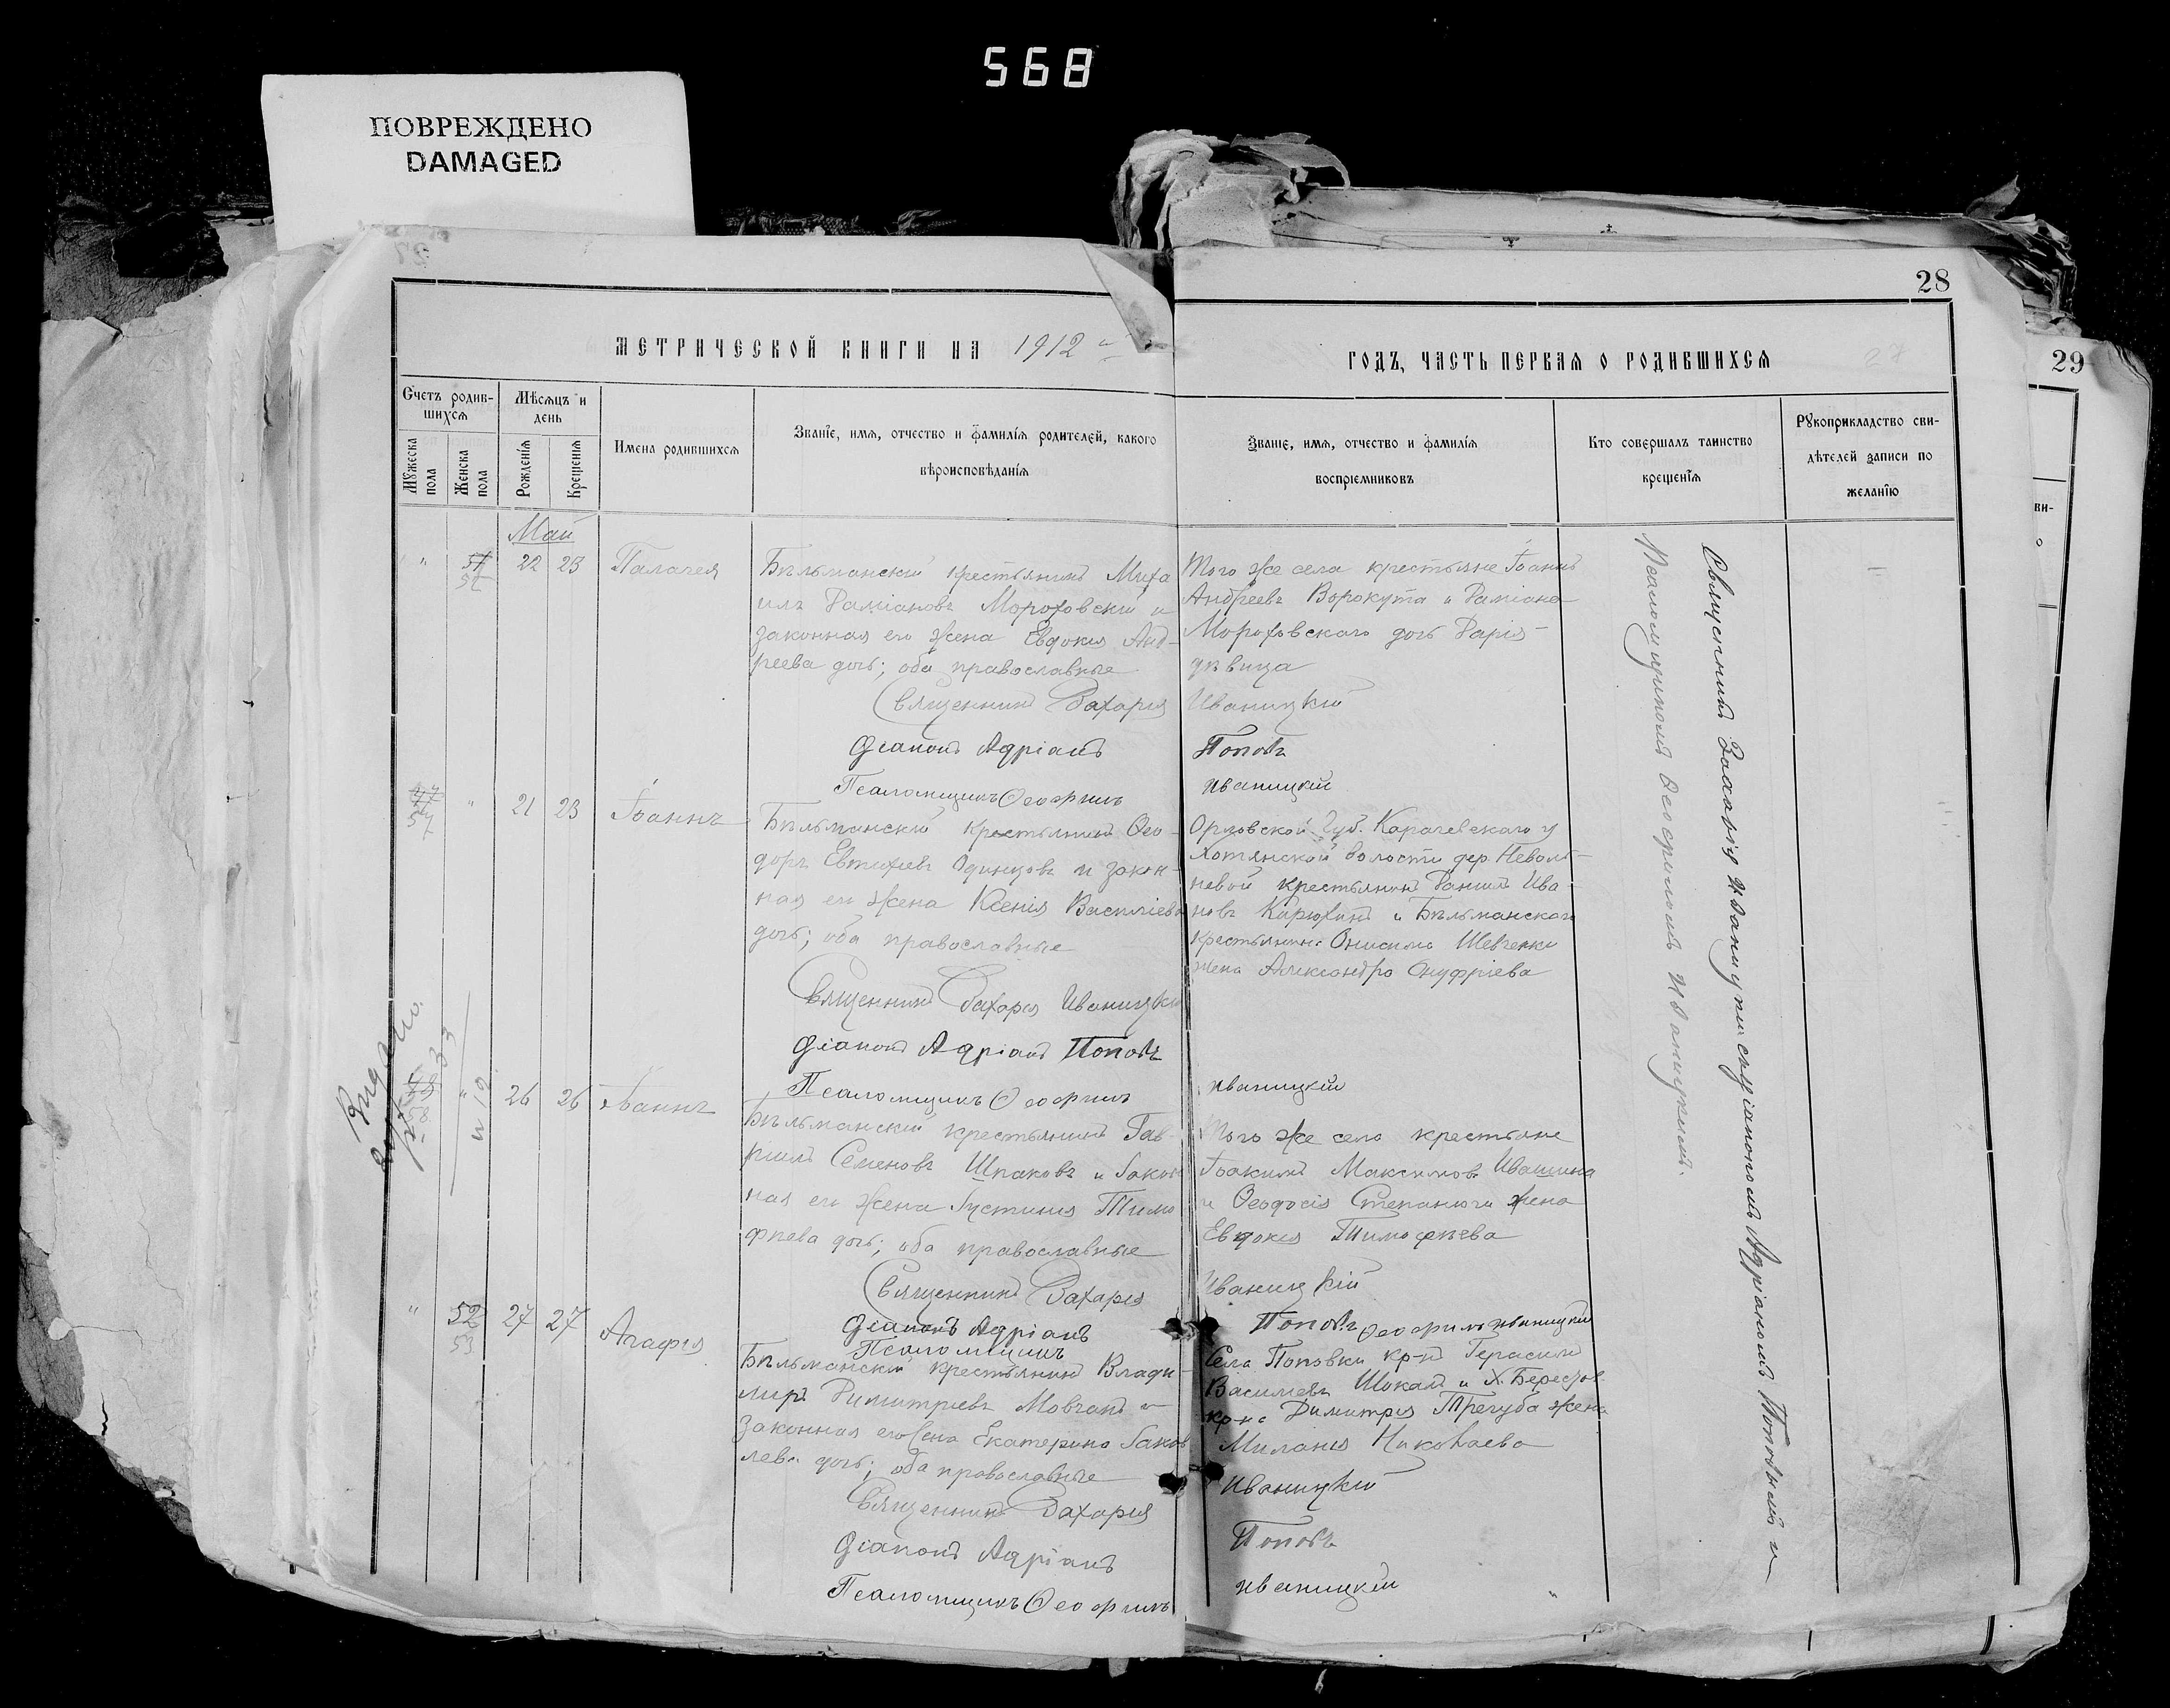 568
ПОВРЕЖДЕНО
DAMAGED
28
29
МЕТРИЧЕСКОЙ КНИГИ НА 1912
ГОДЪ, ЧАСТЬ ПЕРВАЯ О РОДИВШИХСЯ
27
Счетъ родив-
шихся
Мѣсяцъ и
день
Мужеска
пола
Женска
пола
Рожденія
Крещенія
Имена родившихся
Званіе, имя, отчество и фамилія родителей, какого
вѣроисповѣданія
Званіе, имя, отчество и фамилія
воспріемниковъ
Кто совершалъ таинство
крещенія
Рукоприкладство сви-
дѣтелей записи по
желанію
ви-
о
Май
" 51 22 23 Палагея
52
Бѣльманскій крестьянинъ Миха
илъ Даміановъ Мороховскій и
законная его жена Евдокія Анд-
реева дочь; оба православные
Священникъ Захарія Иваницкій
Діаконъ Адріанъ Поповъ
Псаломщикъ Ѳеофилъ Иваницкій
Того же села крестьяне Іоаннъ
Андреевъ Ворокута и Даміана
Мороховскаго дочь Дарія
дѣвица
47
57
" 21 23 Іоаннъ
Бѣльманскій крестьянинъ Ѳео-
доръ Евтихіевъ Одинцовъ и закон-
ная его жена Ксенія Василіева
дочь; оба православные
Священникъ Захарія Иваницкій
Діаконъ Адріанъ Поповъ
Псаломщикъ Ѳеофилъ Иваницкій
Орловской Губ. Карачевскаго у
Хотянской волости дер. Неволь-
невой крестьянинъ Даніилъ Ива-
новъ Карюхинъ и Бѣльманскаго
крестьянина Онисима Шевченки
жена Александра Онуфріева
Видано.
58
" 26 26 Іоаннъ
Бѣльманскій крестьянинъ Гав-
ріилъ Семеновъ Шпаковъ и закон
ная его жена Іустинія Тимо
фѣева дочь; оба православные
Священникъ Захарія Иваницкій
Діаконъ Адріанъ Поповъ
Псаломщикъ Ѳеофилъ Иваницкій
Того же села крестьяне
Іоакимъ Максимовъ Ивашина
и Ѳеодосія Степанюги жена
Евдокія Тимофѣева
" 52 27 27 Агафія
53
Бѣльманскій крестьянинъ Влади-
миръ Димитріевъ Мовчанъ и
законная его жена Екатерина Іаков
лева дочь; оба православные
Священникъ Захарія Иваницкій
Діаконъ Адріанъ Поповъ
Псаломщикъ Ѳеофилъ Иваницкій
Села Поповки кр-нъ Герасимъ
Василіевъ Шокалъ и х. Берестов
кр-на Димитрія Трегуба жена
Миланія Николаева
Священникъ Захарія Иваницкій съ діакономъ Адріаномъ Поповымъ и
Псаломщикомъ Ѳеофиломъ Иваницкимъ.